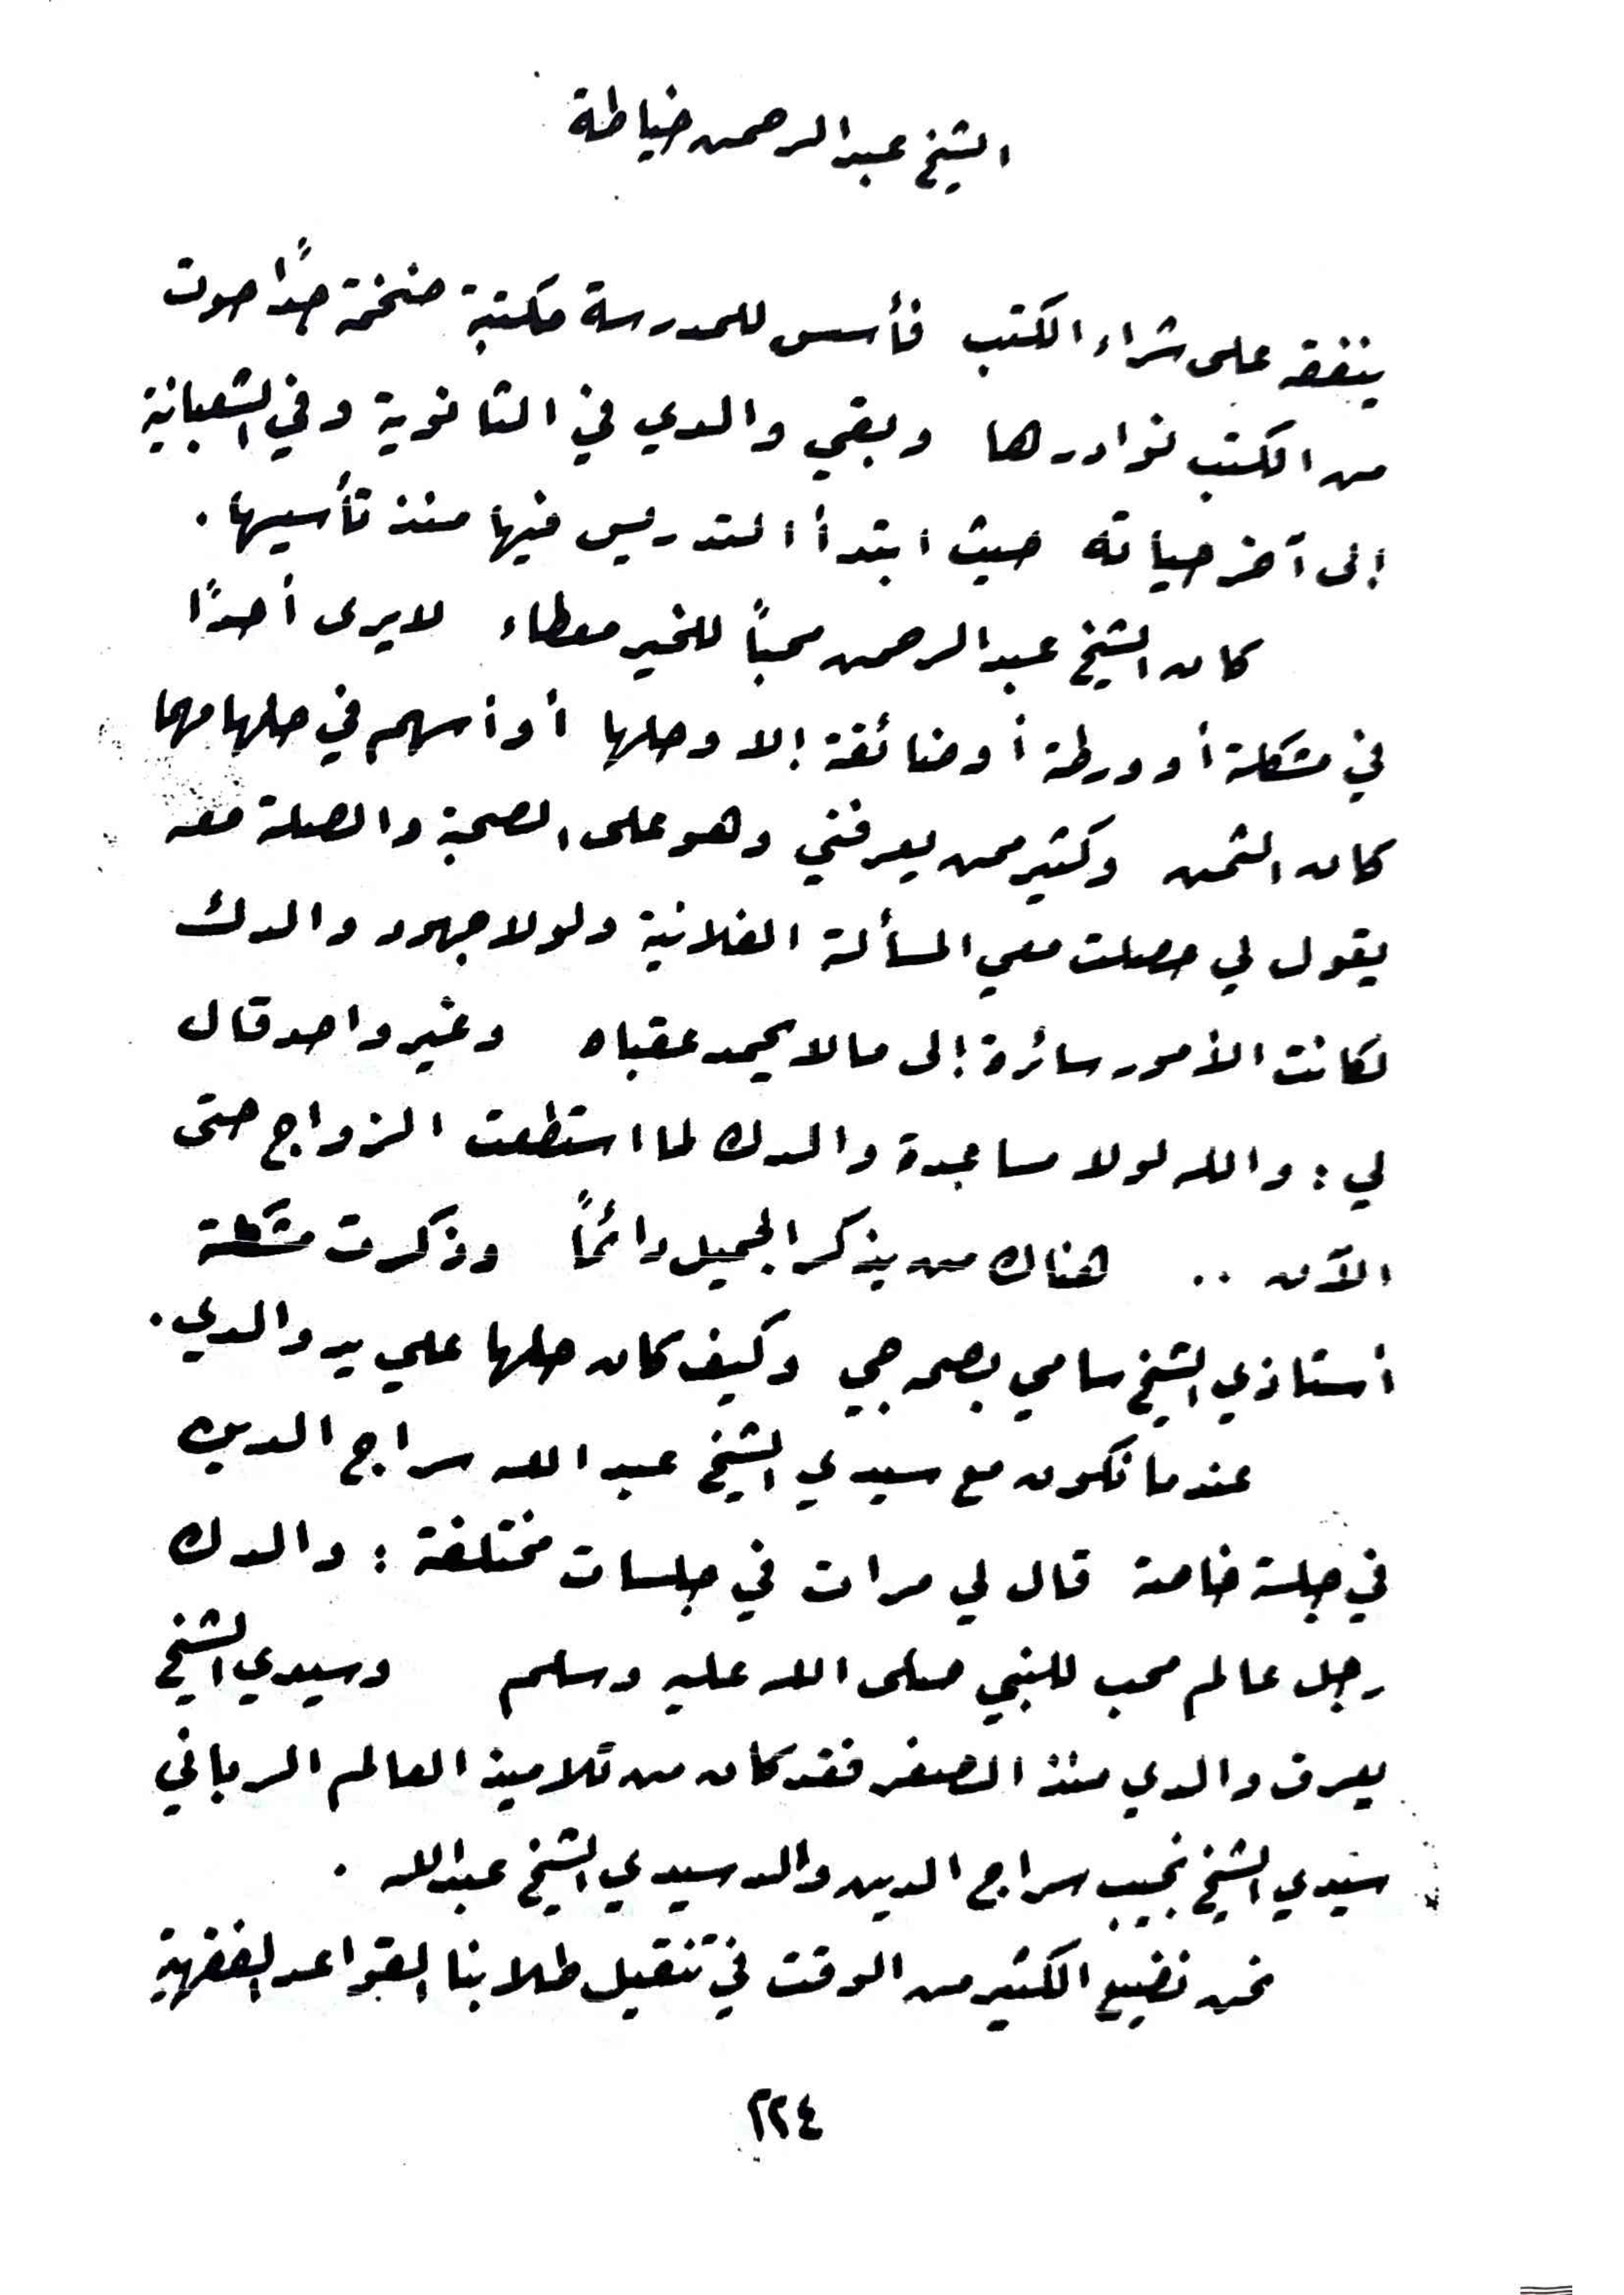 الشيخ عبد الرحمن خياطة
ينفقه على شراء الكتب فأسس للمدرسة مكتبة ضخمة جدًا حوت
من الكتب نوادرها وبقي والدي في الثانوية وفي الشعبانية
إلى آخر حياته حيث ابتدأ التدريس فيها منذ تأسيسها .
كان الشيخ عبد الرحمن محباً للخير معطاء لا يرى أحدًا
في مشكلة أو ورطة أو ضائقة إلا وحلها أو أسهم في حلها مهما
كان الثمن وكثير ممن يعرفني وهو على الصحبة والصلة معه
يقول لي حصلت معي المسألة الفلانية ولولا جهود والدك
لكانت الأمور سائرة إلى ما لا يحمد عقباه وغير واحد قال
لي : والله لولا مساعدة والدك لما استطعت الزواج حتى
الآن .. هناك من يذكر الجميل دائماً وذكرت مشكلة
أستاذي الشيخ سامي بصمه جي وكيف كان حلها على يد والدي .
عندما نكون مع سيدي الشيخ عبد الله سراج الدين
في جلسة خاصة قال لي مرات في جلسات مختلفة : والدك
رجل عالم محب للنبي صلى الله عليه وسلم وسيدي الشيخ
يعرف والدي منذ الصغر فقد كان من تلاميذ العالم الرباني
سيدي الشيخ نجيب سراج الدين والد سيدي الشيخ عبد الله .
نحن نضيع الكثير من الوقت في تنقيل طلابنا القواعد الفقهية
٢٢٤